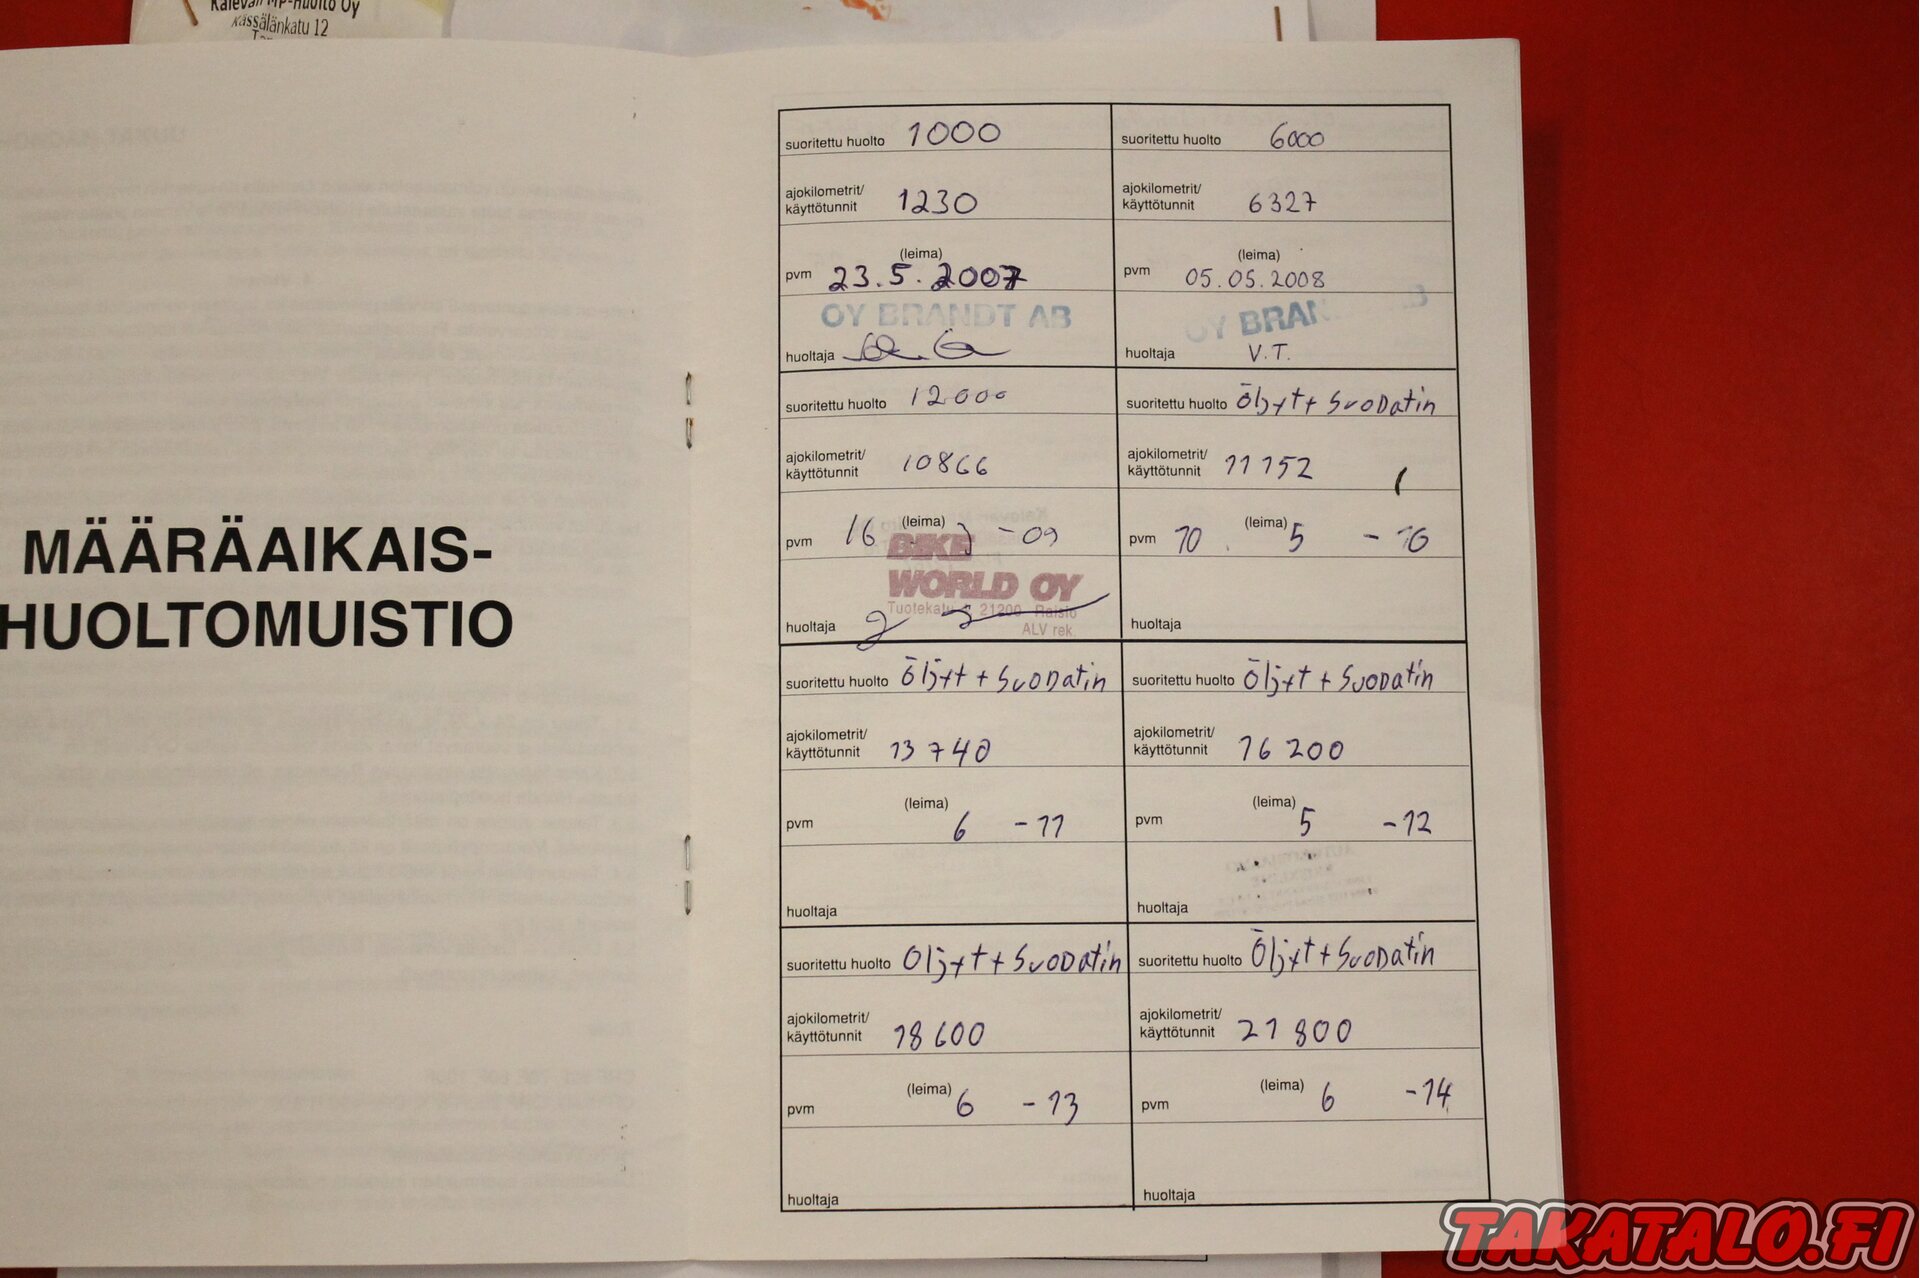 Kalevan MP-Huolto Oy
Kässälänkatu 12
MÄÄRÄAIKAIS-
HUOLTOMUISTIO
suoritettu huolto 1000
ajokilometrit/
käyttötunnit 1230
(leima)
pvm 23.5.2007
OY BRANDT AB
huoltaja
suoritettu huolto 6000
ajokilometrit/
käyttötunnit 6327
(leima)
pvm 05.05.2008
OY BRAN
huoltaja V.T.
suoritettu huolto 12000
ajokilometrit/
käyttötunnit 10866
(leima)
pvm 16 -09
BIKE
WORLD OY
Tuotekatu 21200 Raisio
ALV rek.
huoltaja
suoritettu huolto Öljyt + Suodatin
ajokilometrit/
käyttötunnit 11152
(leima)
pvm 10. 5 - 10
huoltaja
suoritettu huolto Öljyt + Suodatin
ajokilometrit/
käyttötunnit 13740
(leima)
pvm 6 -11
huoltaja
suoritettu huolto Öljyt + Suodatin
ajokilometrit/
käyttötunnit 16200
(leima)
pvm 5 -12
huoltaja
suoritettu huolto Oljyt + Suodatin
ajokilometrit/
käyttötunnit 18600
(leima)
pvm 6 -13
huoltaja
suoritettu huolto Öljyt + Suodatin
ajokilometrit/
käyttötunnit 21800
(leima)
pvm 6 -14
huoltaja
TAKATALO.FI